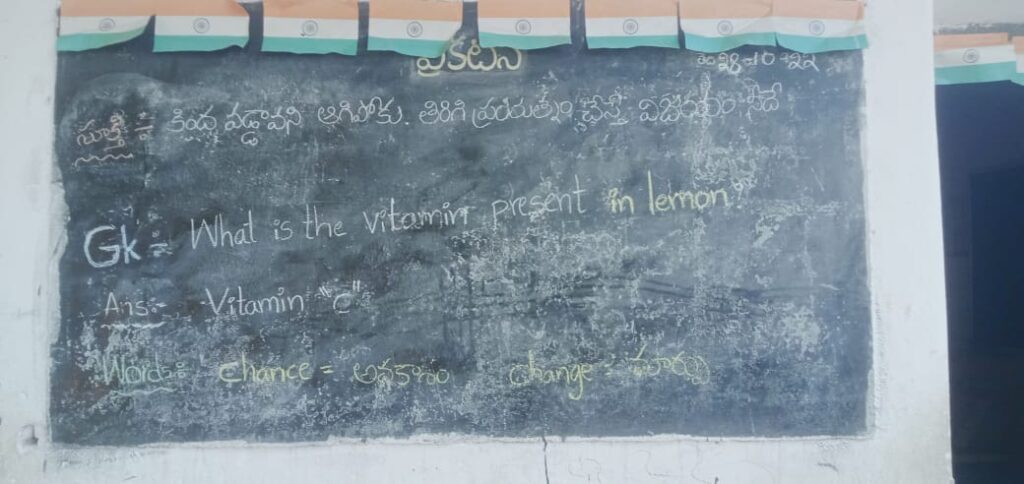 ప్రకటన
28-10-22
సూక్తి :- కింద పడ్డావని ఆగిపోకు. తిరిగి ప్రయత్నం చేస్తే విజయం నీదే
Gk :- What is the vitamin present in lemon?
Ans:- Vitamin "C"
Words: chance = అవకాశం change = మార్పు